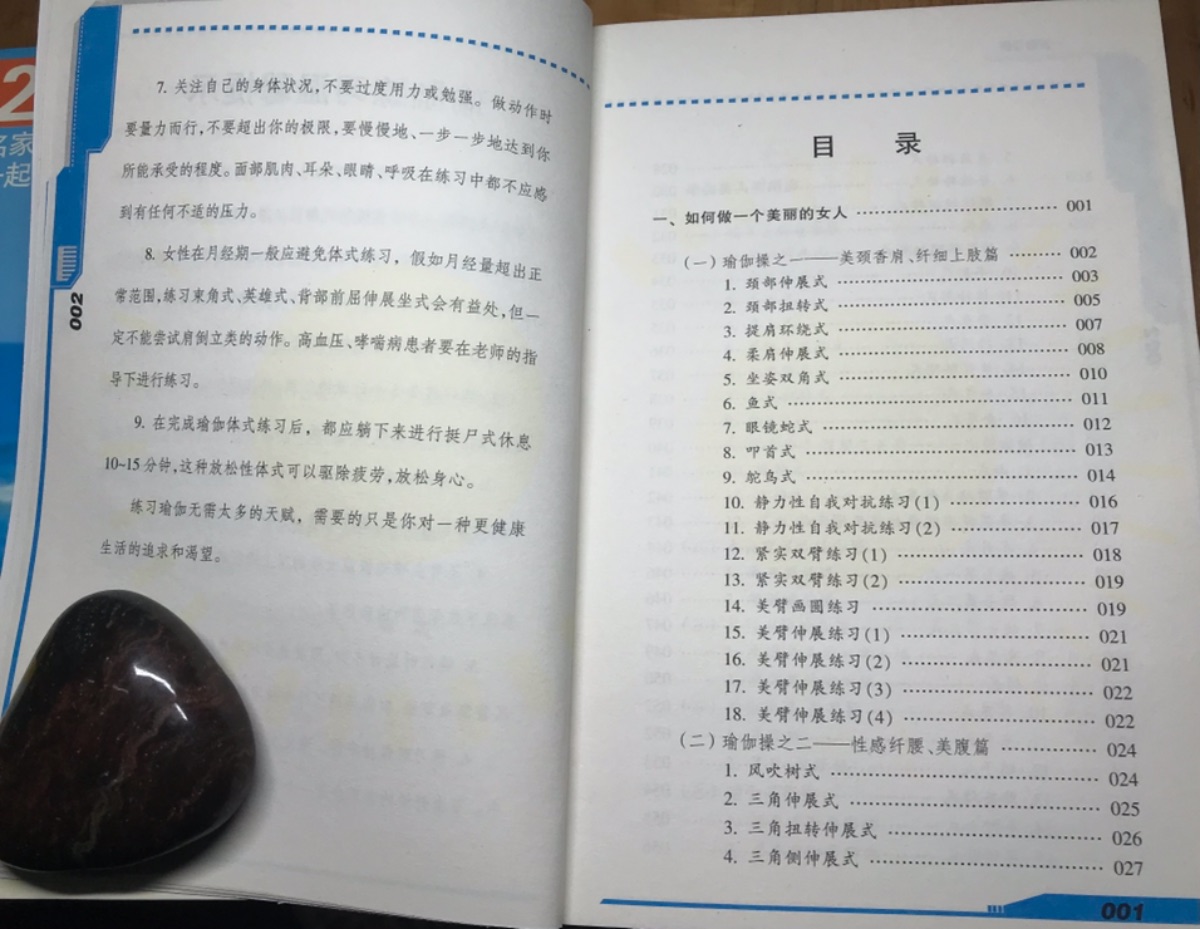 2
名家
一起
7. 关注自己的身体状况,不要过度用力或勉强。做动作时
要量力而行,不要超出你的极限,要慢慢地、一步一步地达到你
所能承受的程度。面部肌肉、耳朵、眼睛、呼吸在练习中都不应感
到有任何不适的压力。
8. 女性在月经期一般应避免体式练习，假如月经量超出正
常范围,练习束角式、英雄式、背部前屈伸展坐式会有益处,但一
定不能尝试肩倒立类的动作。高血压、哮喘病患者要在老师的指
导下进行练习。
9. 在完成瑜伽体式练习后，都应躺下来进行挺尸式休息
10~15分钟,这种放松性体式可以驱除疲劳,放松身心。
练习瑜伽无需太多的天赋，需要的只是你对一种更健康
生活的追求和渴望。
002
目 录
一、如何做一个美丽的女人 ………………………… 001
(一)瑜伽操之一——美颈香肩、纤细上肢篇 ……… 002
1. 颈部伸展式 ………………………… 003
2. 颈部扭转式 ………………………… 005
3. 提肩环绕式 ………………………… 007
4. 柔肩伸展式 ………………………… 008
5. 坐姿双角式 ………………………… 010
6. 鱼式 ………………………… 011
7. 眼镜蛇式 ………………………… 012
8. 叩首式 ………………………… 013
9. 鸵鸟式 ………………………… 014
10. 静力性自我对抗练习(1) ……………… 016
11. 静力性自我对抗练习(2) ……………… 017
12. 紧实双臂练习(1) ……………… 018
13. 紧实双臂练习(2) ……………… 019
14. 美臂画圆练习 ……………… 019
15. 美臂伸展练习(1) ……………… 021
16. 美臂伸展练习(2) ……………… 021
17. 美臂伸展练习(3) ……………… 022
18. 美臂伸展练习(4) ……………… 022
(二)瑜伽操之二——性感纤腰、美腹篇 ……………… 024
1. 风吹树式 ………………………… 024
2. 三角伸展式 ………………………… 025
3. 三角扭转伸展式 ………………………… 026
4. 三角侧伸展式 ………………………… 027
001